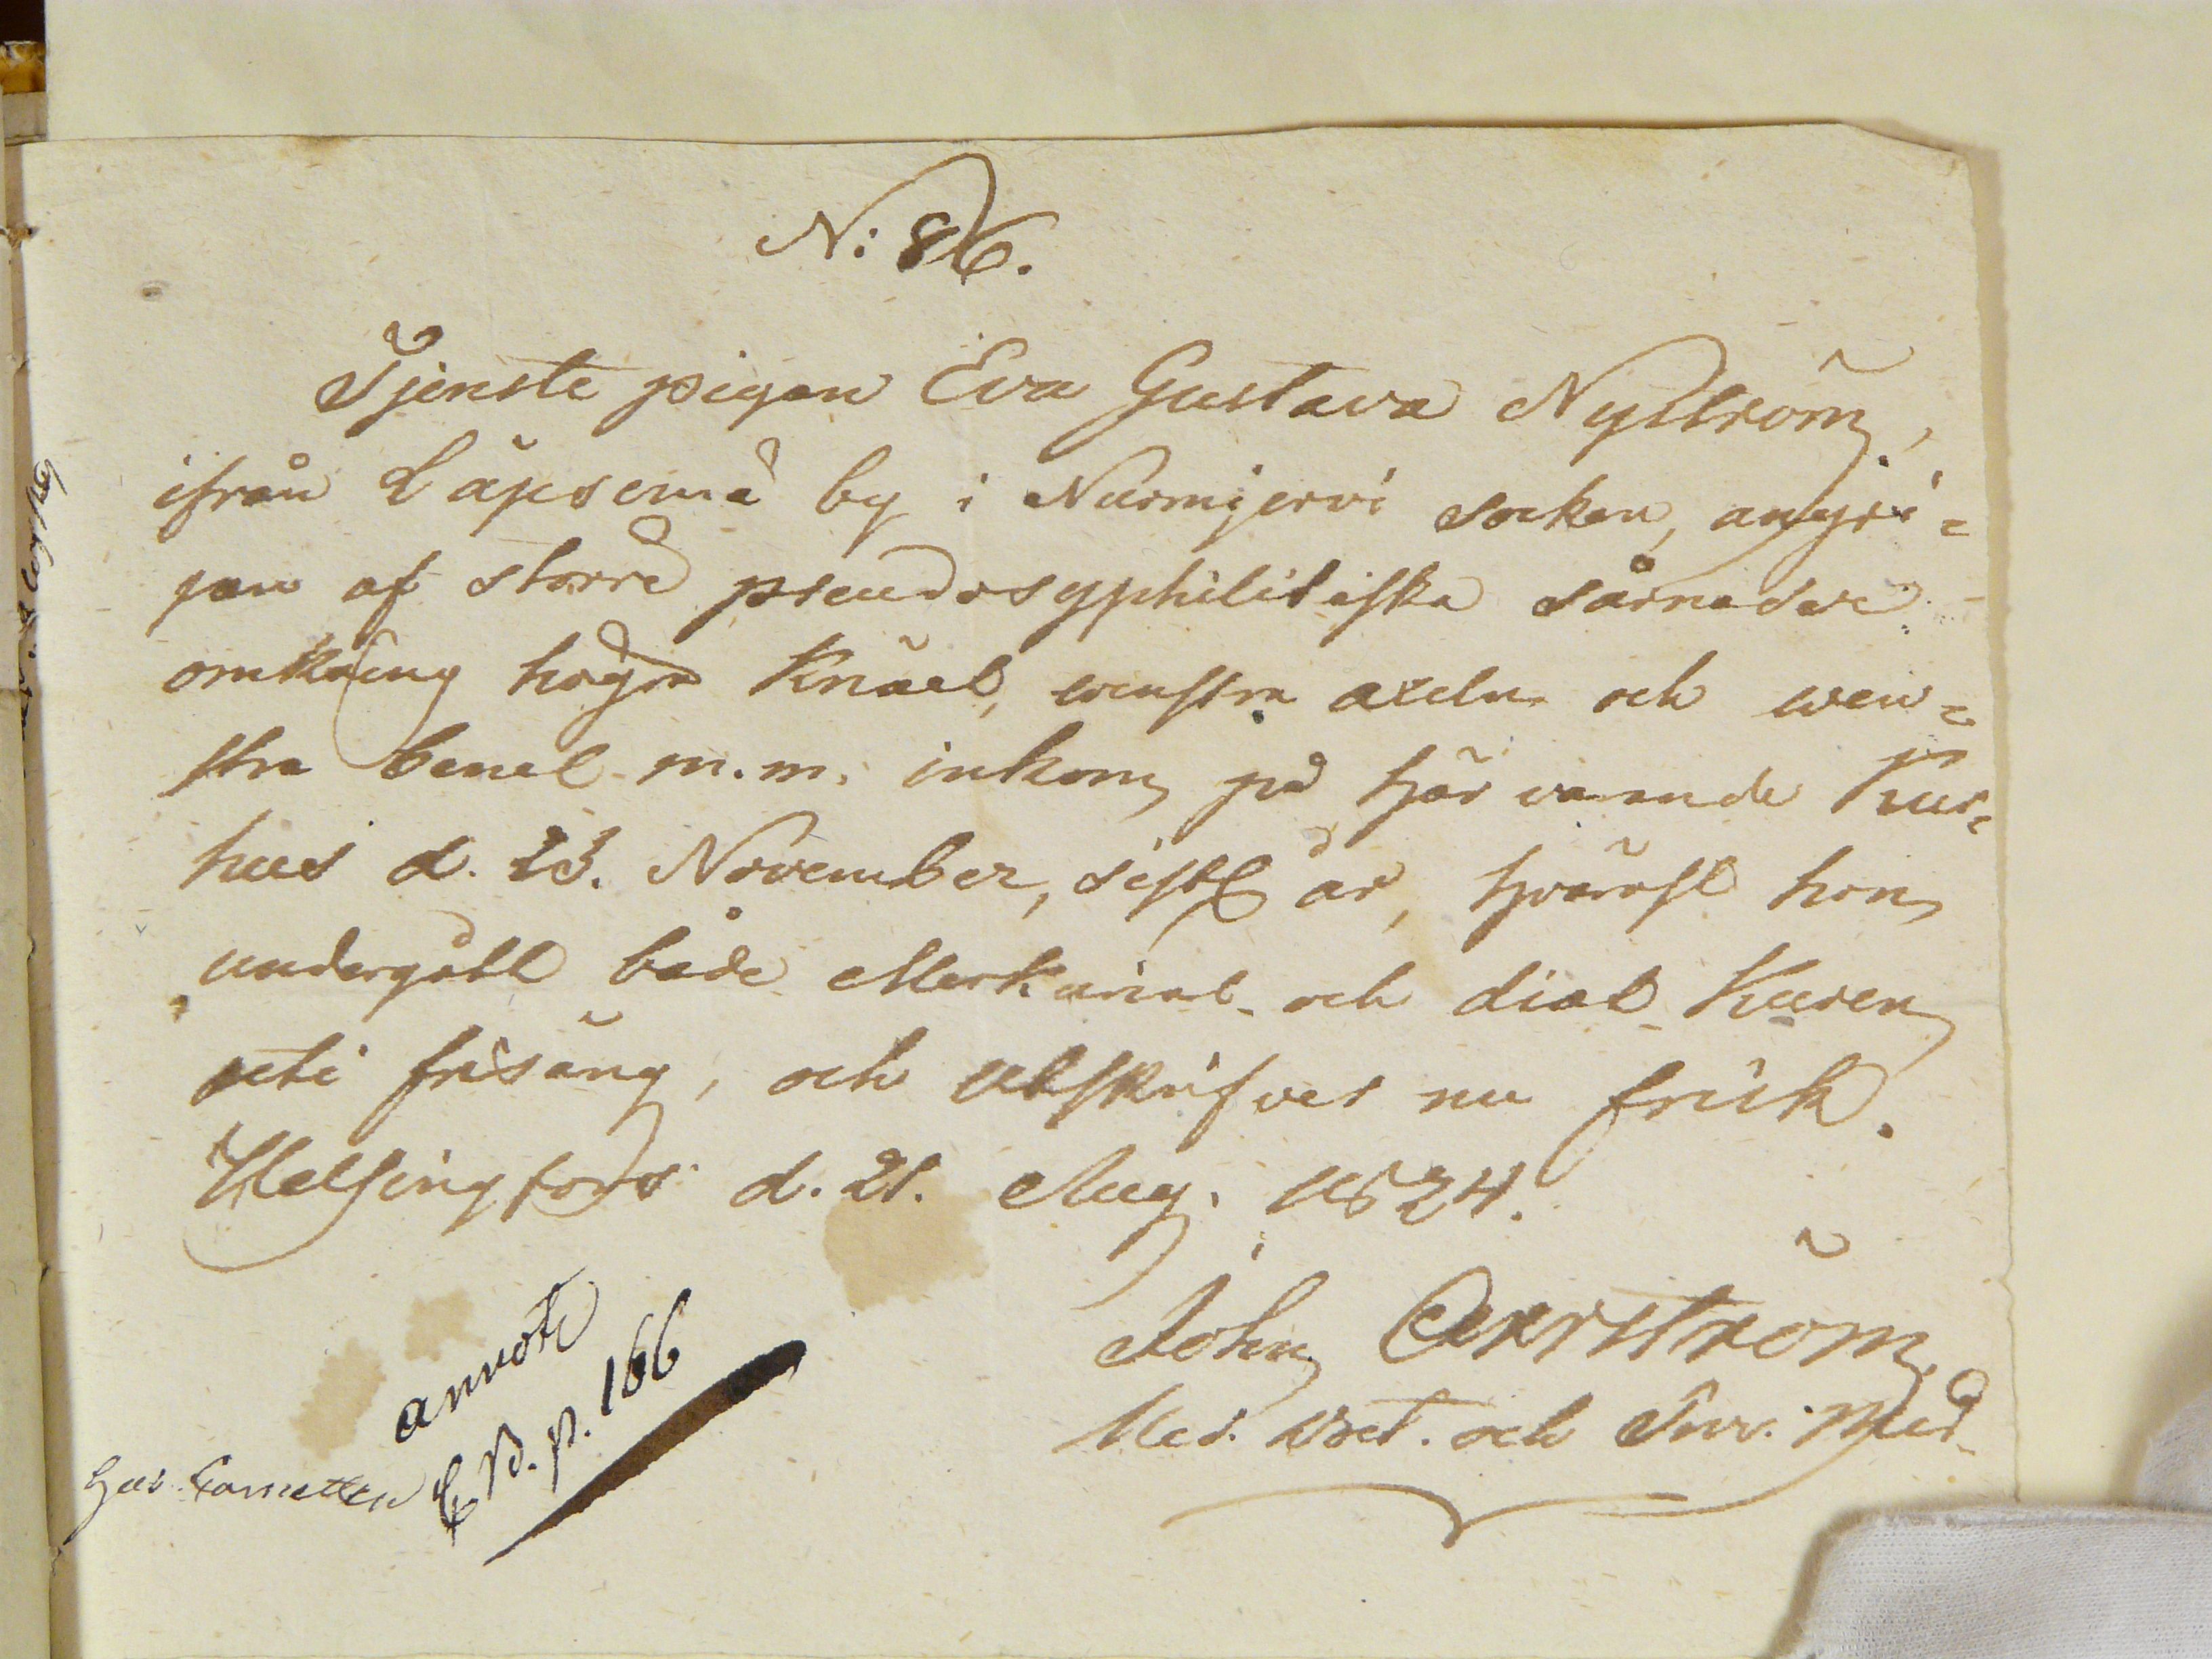 N: 86.
Tjenste pigan Eva Gustava Nyström,
ifrån Läpsemä by i Nurmijervi socken, angri=
pen af större pseudosyphilitiska sårnader
omkring högra Knäet, wenstra axeln och wen=
stra benet m.m. inkom på härvarande Kur=
hus d. 23. November, sistl. år, hvaräst hon
undergått både Merkurial- och diat-Kuren
uti frisäng, och utskrifves nu frisk.
Helsingfors d. 21. Aug. 1824.
John Agerström
Med. och Med.
annot
C B. p. 166